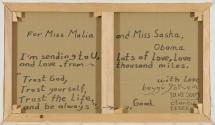 For Miss Malia and Miss Sasha,
Obama
I'm sending to U, Lots of Love, Love
and Love, from thousand miles.
"Trust God,
Trust yourself,
Trust the Life,
and be always Good.
with love